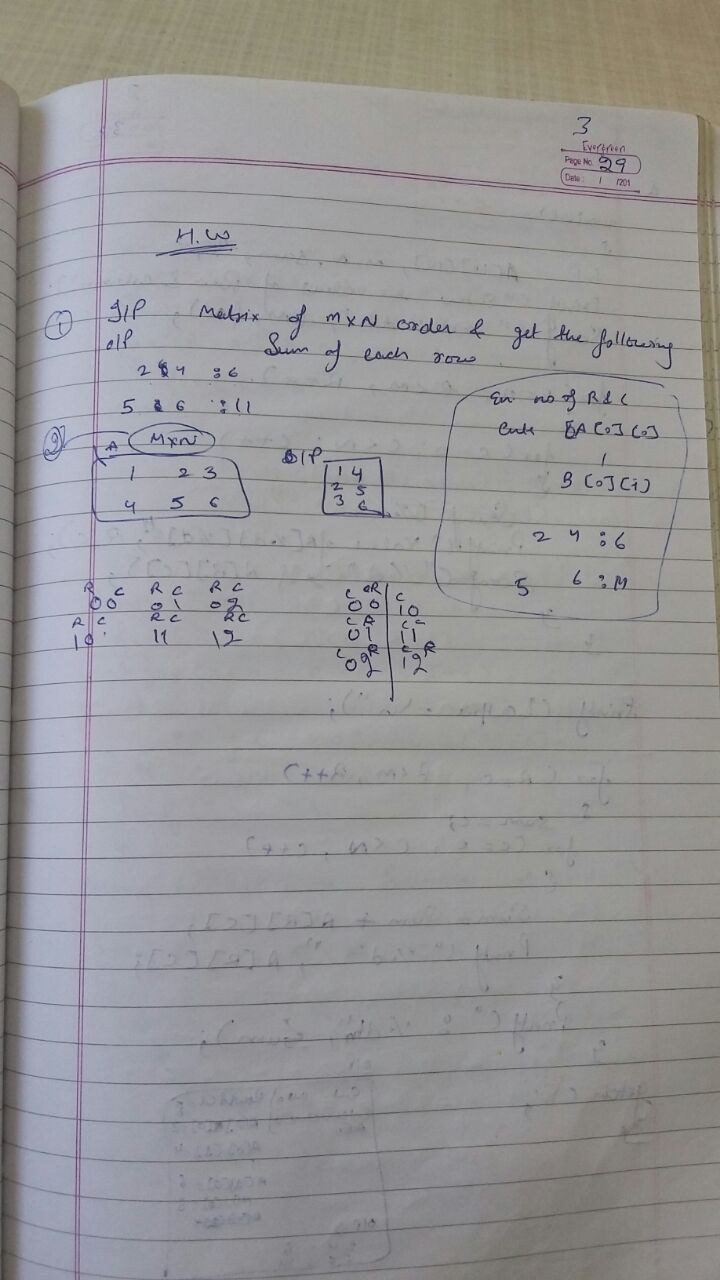 3
Evergreen
Page No. 29
Date: / /201
H.W
① I/P Matrix of M×N order & get the following
O/P Sum of each row.
2 4 : 6
5 6 : 11
② A M×N
1 2 3
4 5 6
O/P
1 4
2 5
3 6
En no of R & C
Ente A[0][0]
B[0][1]
2 4 : 6
5 6 : 11
R C R C R C
00 01 02
R C R C R C
10 11 12
C R C
00 10
01 11
C R C R
02 12